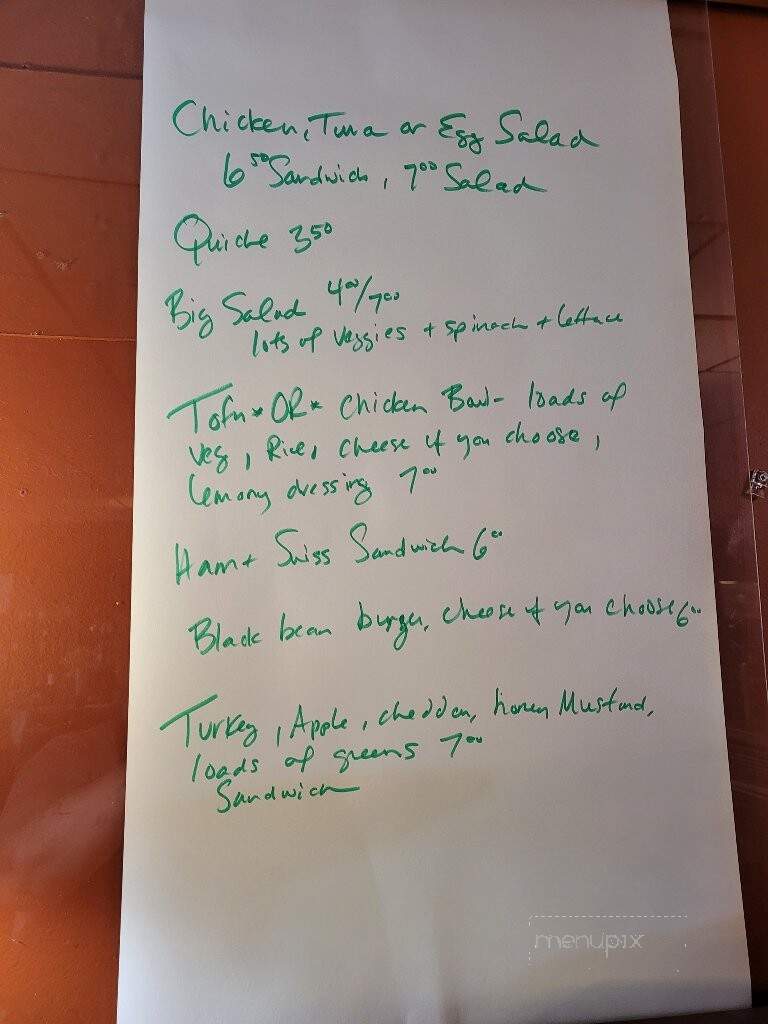 Chicken, Tuna or Egg Salad
6⁵⁰ Sandwich, 7⁰⁰ Salad
Quiche 3⁵⁰
Big Salad 4⁰⁰/7⁰⁰
lots of veggies + spinach + lettuce
Tofu *OR* Chicken Bowl - loads of
veg, Rice, cheese if you choose,
lemony dressing 7⁰⁰
Ham + Swiss Sandwich 6⁰⁰
Black bean burger, cheese if you choose 6⁰⁰
Turkey, Apple, cheddar, honey Mustard,
loads of greens 7⁰⁰
Sandwich
menupix